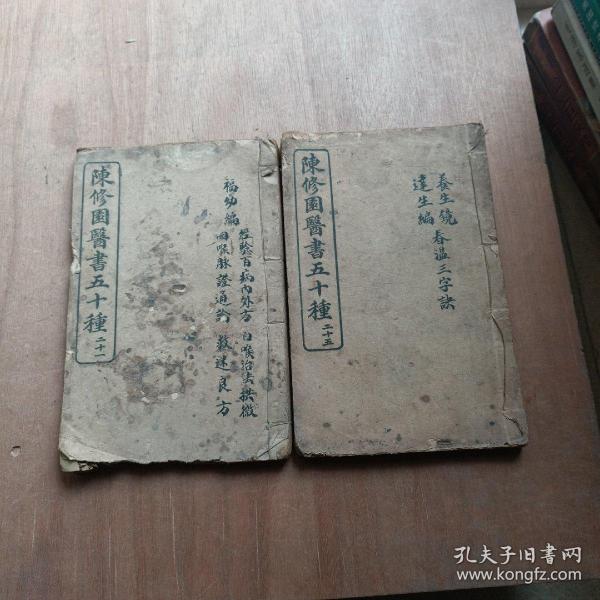 陳修園醫書五十種 二十一
福幼編 經驗百病內外方 白喉治法抉微
咽喉脉證通論 救迷良方
陳修園醫書五十種 二十五
養生鏡 春温三字訣
達生編
孔夫子旧书网
www.kongfz.com